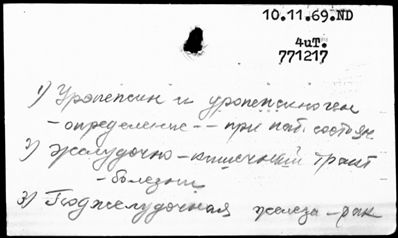 10.11.69.ND
4иТ.
771217
1) Уропепсин и уропепсиноген
- определение -- при пат. состоян
2) Желудочно-кишечный тракт
- болезни
3) Поджелудочная железа - рак